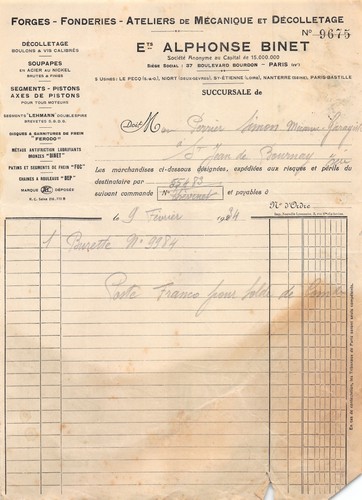 Forges - Fonderies - Ateliers de Mécanique et Décolletage
N° 9675
DÉCOLLETAGE
BOULONS & VIS CALIBRÉS
SOUPAPES
EN ACIER AU NICKEL
BRUTES & FINIES
SEGMENTS - PISTONS
AXES DE PISTONS
POUR TOUS MOTEURS
SEGMENTS "LEHMANN" DOUBLES FINS
BREVETÉS S.G.D.G.
DISQUES & GARNITURES DE FREIN
"FERODO"
MÉTAUX ANTIFRICTION LUBRIFIANTS
BRONZES "BINET"
PATINS ET SEGMENTS DE FREIN "FOG"
CHAINES A ROULEAUX "REP"
MARQUE DÉPOSÉE
Ets ALPHONSE BINET
Société Anonyme au Capital de 15.000.000
SIÈGE SOCIAL : 37 BOULEVARD BOURDON - PARIS (IVe)
5 USINES : LE PECQ (S.&-O.), NIORT (DEUX-SÈVRES), ST-ÉTIENNE (LOIRE), NANTERRE (SEINE), PARIS-BASTILLE
SUCCURSALE de
Doit M Simon
St Jean de Bournay
Les marchandises ci-dessous désignées, expédiées aux risques et périls du
destinataire par
suivant commande N° et payables à
le 9 Février 1934
N° d'Ordre
1 Burette N° 9984
Poste Franco pour solde de